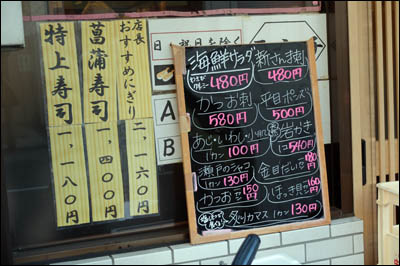 店長
おすすめにぎり
二、一六〇円
菖蒲寿司
一、四〇〇円
特上寿司
一、一八〇円
日・祝日を除く
A
B
海鮮サラダ
480円
新さんま刺
480円
かつお刺
580円
平目ポンズ
500円
あじ・いわし
1カン 100円
岩かき
1コ 540円
瀬戸のシャコ
1カン 130円
金目だい
180円
かつお
150円
ほっき貝
160円
炙りカマス 1カン 130円